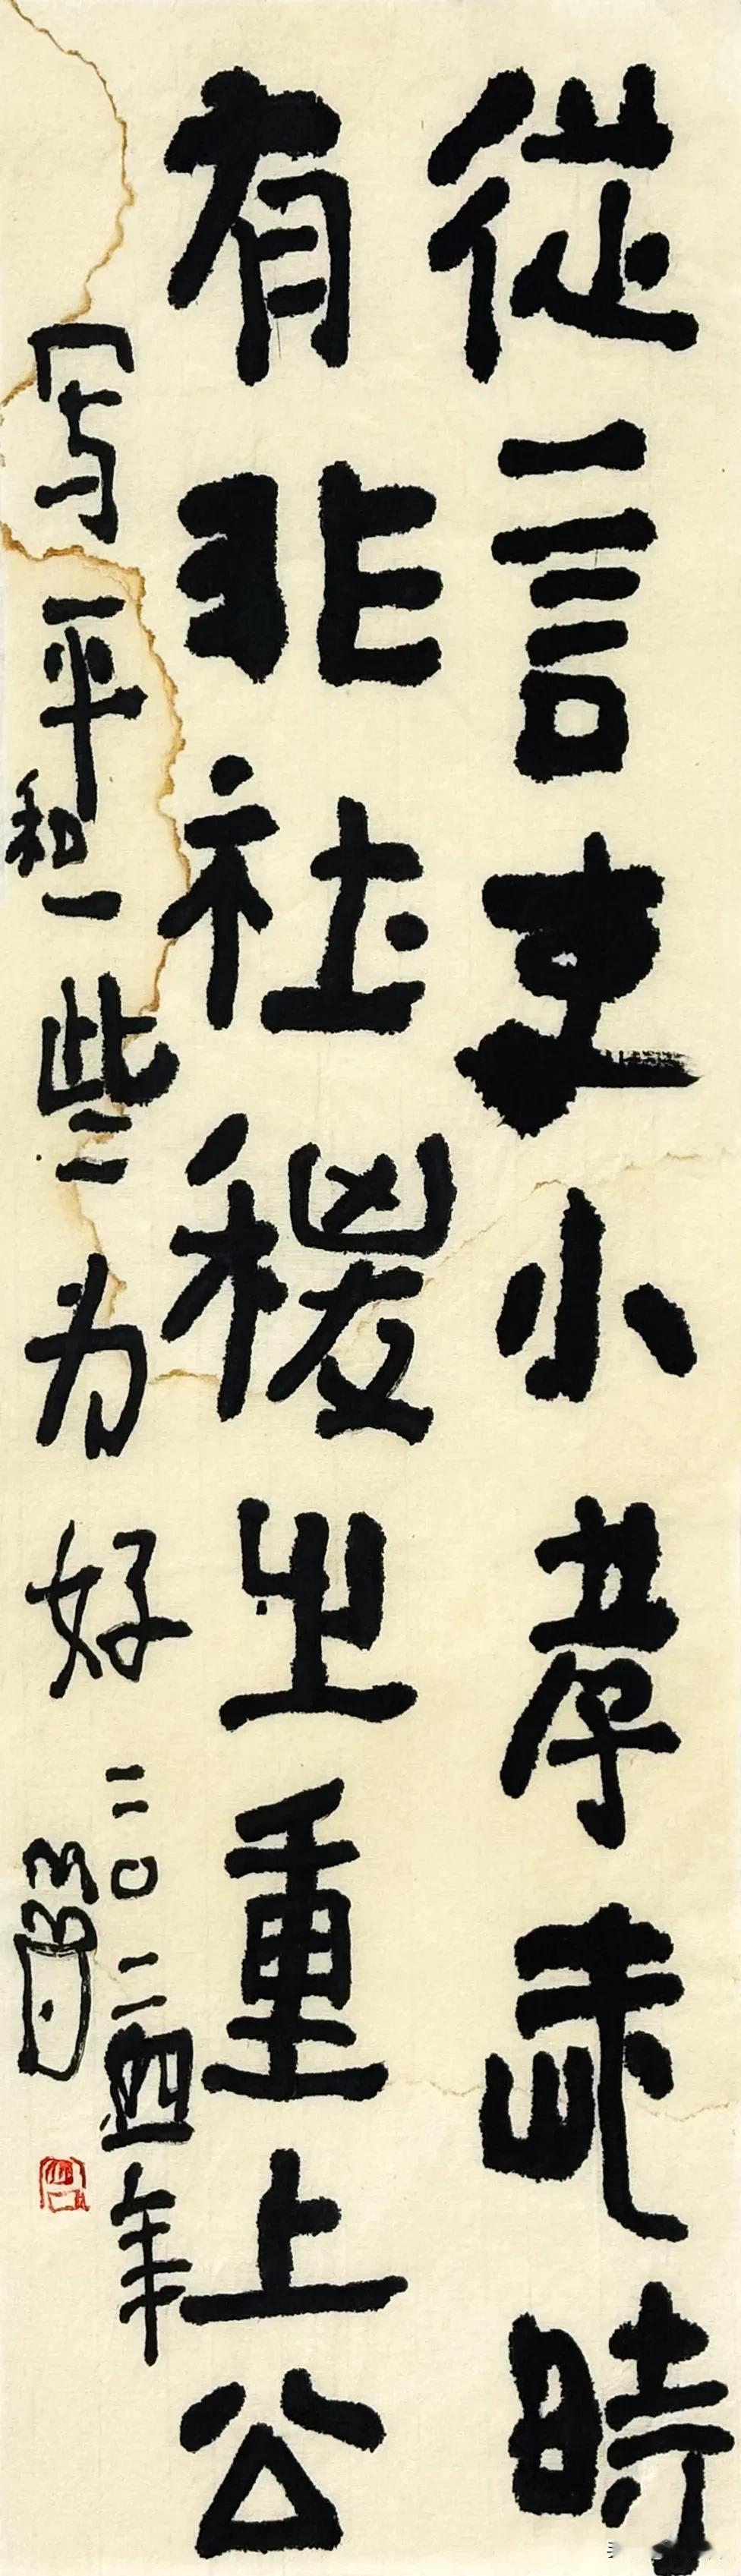 從言吏小孝時
有非社稷之重上公
写平和一些为好
二〇二四年